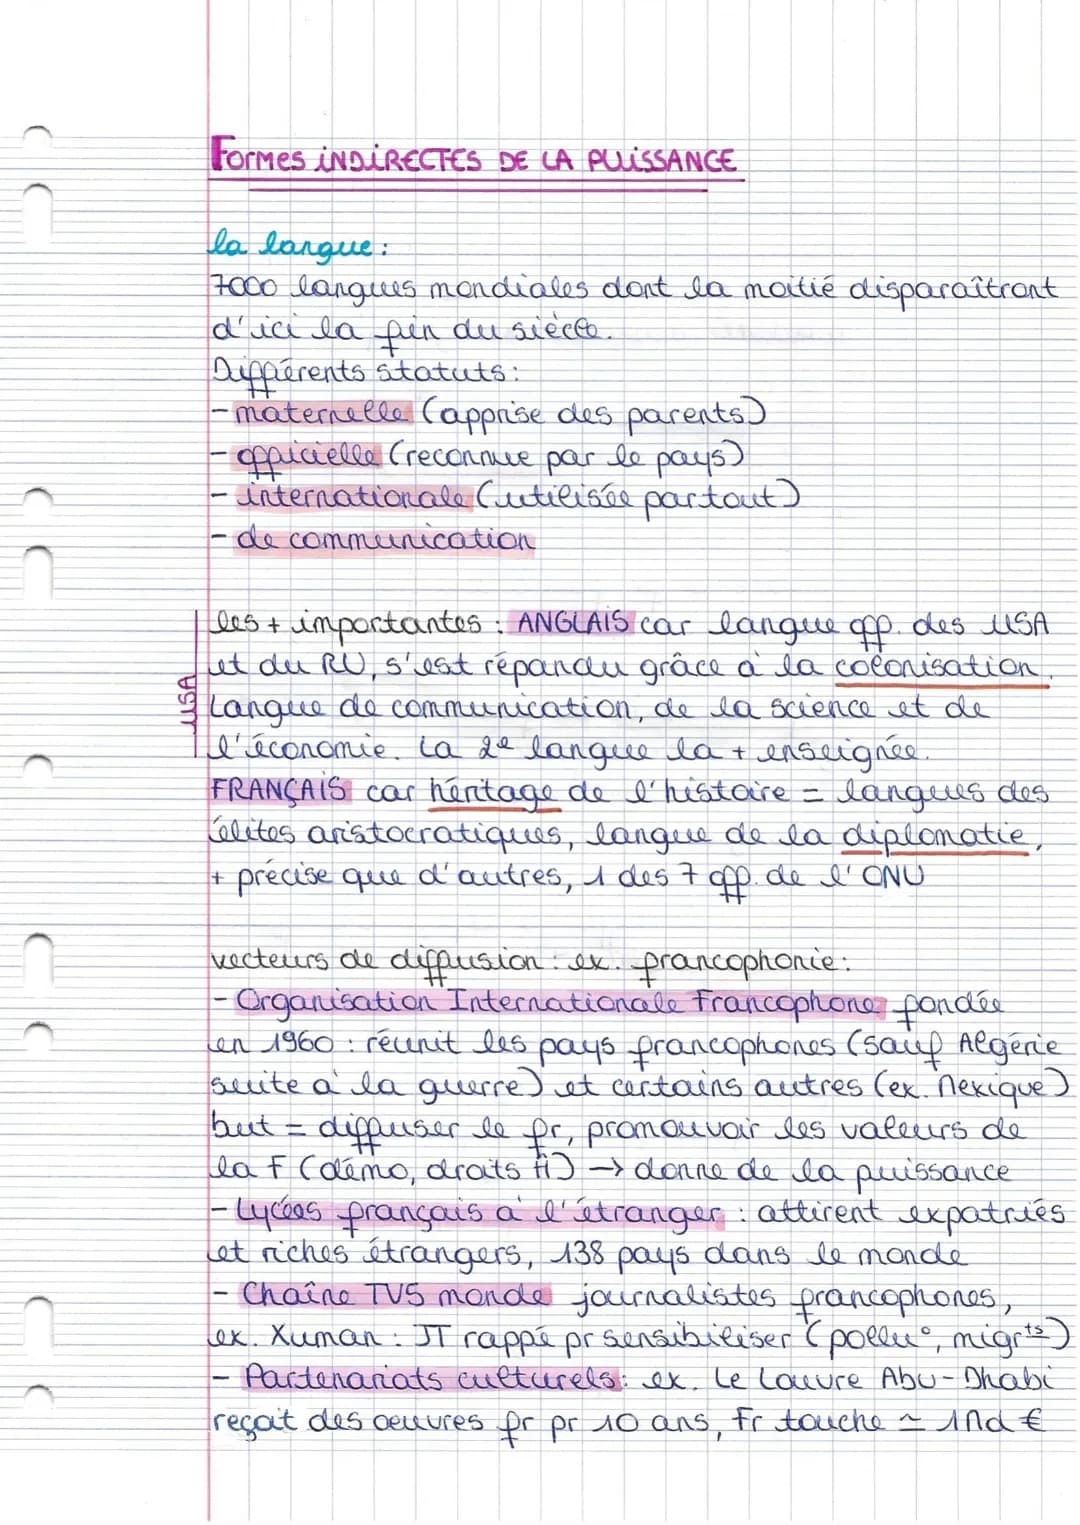 FORMES INDIRECTES DE LA PUISSANCE
la langue :
7000 langues mondiales dont la moitié disparaîtront
d'ici la fin du siècle.
Différents statuts :
- maternelle (apprise des parents)
- officielle (reconnue par le pays)
- internationale (utilisée partout)
- de communication
les + importantes : ANGLAIS car langue off. des USA
et du RU, s'est répandu grâce à la colonisation.
USA
Langue de communication, de la science et de
l'économie. La 2e langue la + enseignée.
FRANÇAIS car héritage de l'histoire = langues des
élites aristocratiques, langue de la diplomatie,
+ précise que d'autres, 1 des 7 off. de l'ONU
vecteurs de diffusion : ex. francophonie :
- Organisation Internationale Francophone fondée
en 1960 : réunit les pays francophones (sauf Algérie
suite à la guerre) et certains autres (ex. Mexique)
but = diffuser le fr, promouvoir les valeurs de
la F (démo, droits H) → donne de la puissance
- Lycées français à l'étranger : attirent expatriés
et riches étrangers, 138 pays dans le monde
- Chaîne TV5 monde journalistes francophones,
ex. Xuman : JT rappé pr sensibiliser (pollu°, migrts)
- Partenariats culturels : ex. Le Louvre Abu-Dhabi
reçoit des oeuvres fr pr 10 ans, Fr touche ≃ 1Md €